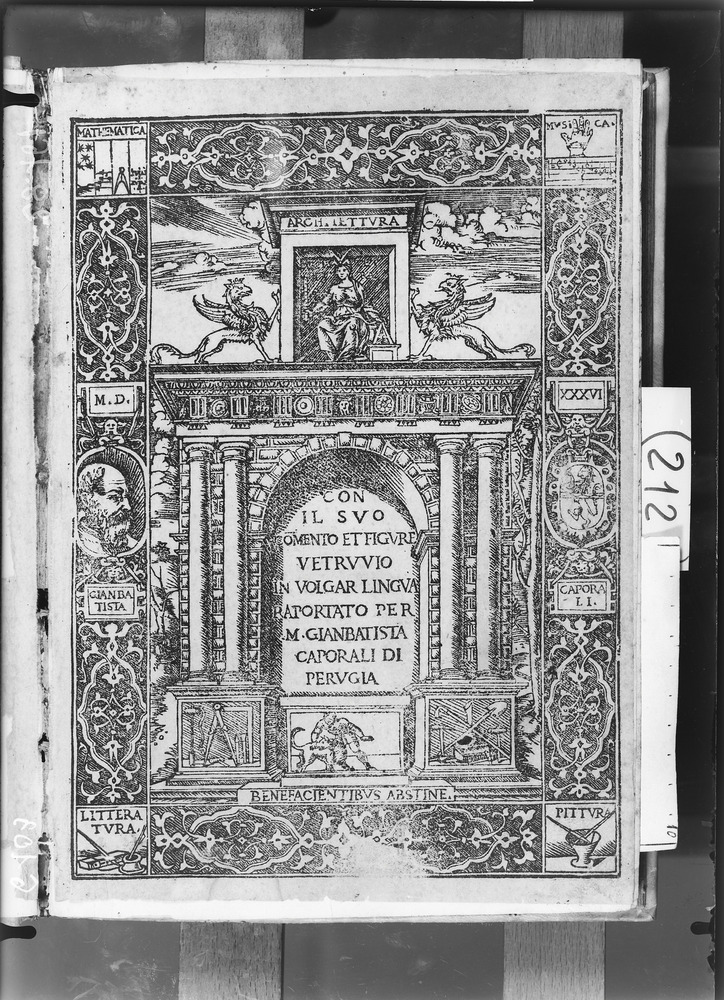 MATHEMATICA
MUSICA.
ARCHITETTVRA
M.D.
XXXVI
CON
IL SVO
COMENTO ET FIGVRE
VETRVVIO
IN VOLGAR LINGVA
RAPORTATO PER
M. GIANBATISTA
CAPORALI DI
PERVGIA
GIANBA
TISTA
CAPORA
LI.
BENEFACIENTIBVS ABSTINE.
LITTERA
TVRA.
PITTVRA
(212
10